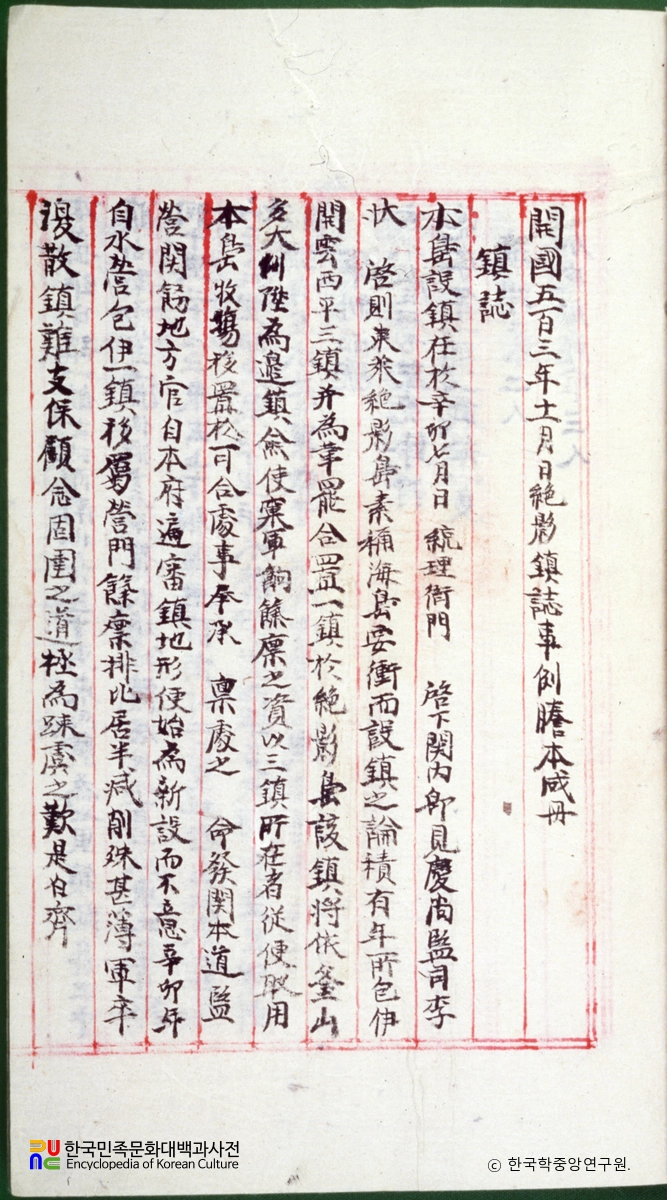 開國五百三年十一月日絶影鎭誌事例謄本成冊
鎭誌
本島設鎭在於辛卯七月日 統理衙門 啓下関內卽見慶尙監司李
狀 啓則東萊絶影島素稱海島要衝而設鎭之論積有年所包伊
開雲西平三鎭幷爲革罷合置一鎭於絶影島該鎭將依釜山
多大例陞爲邊鎭僉使稟軍餉餘廩之資以三鎭所在者從便取用
本島牧場移置於可合處事奉承 稟處之 命發関本道監
營関飭地方官自本府遍審鎭地形便始爲新設而不意辛卯年
自水營包伊一鎭移屬營門餘廩排比居半减削殊甚薄軍卒
渙散鎭難支保顧念固圉之道極爲踈虞之歎是白齊
한국민족문화대백과사전
Encyclopedia of Korean Culture
ⓒ 한국학중앙연구원.